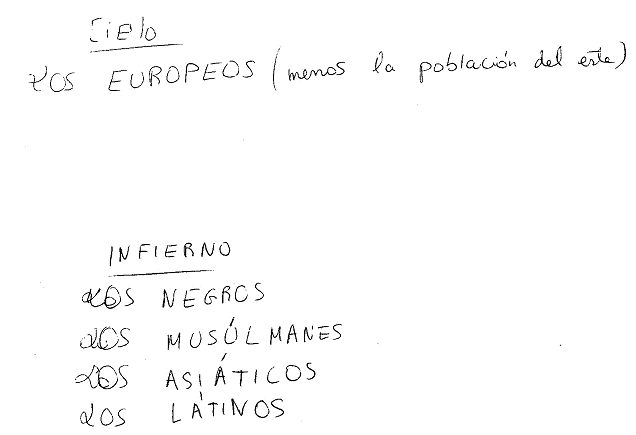 Cielo
LOS EUROPEOS (menos la población del este)
INFIERNO
LOS NEGROS
LOS MUSÚLMANES
LOS ASIÁTICOS
LOS LÁTINOS